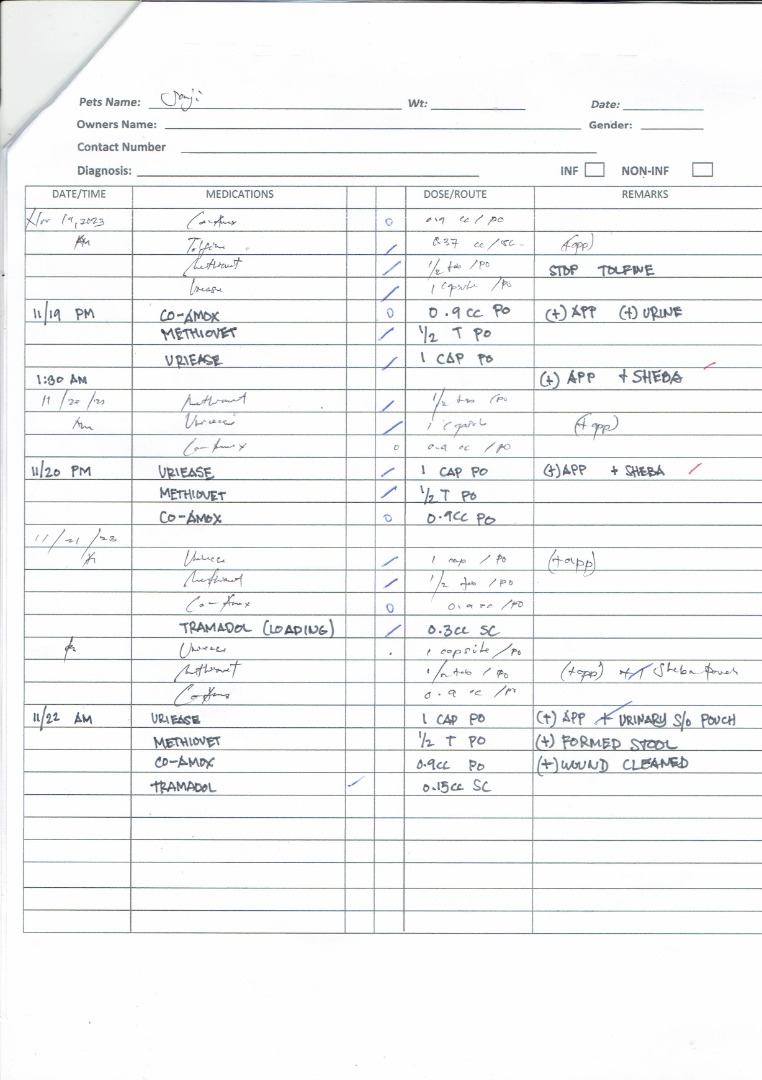 Pets Name: Wt: Date:
Owners Name: Gender:
Contact Number
Diagnosis: INF NON-INF
DATE/TIME MEDICATIONS DOSE/ROUTE REMARKS
19, 2023 Co-Amox 0 0.9 cc / PO
AM Tolfine / 0.37 cc / SC (+app)
/ 1/2 tab / PO STOP TOLFINE
Uriease / 1 capsule / PO
11/19 PM CO-AMOX 0 0.9 CC PO (+) APP (+) URINE
METHIOVET / 1/2 T PO
URIEASE / 1 CAP PO
1:30 AM (+) APP + SHEBA
11/20/23 / 1/2 tab / PO
AM / 1 capsule (+app)
Co-Amox 0 0.9 cc / PO
11/20 PM URIEASE / 1 CAP PO (+) APP + SHEBA
METHIOVET / 1/2 T PO
CO-AMOX 0 0.9CC PO
11/21/23
/ 1 cap / PO (+app)
/ 1/2 tab / PO
Co-Amox 0 0.9 cc / PO
TRAMADOL (LOADING) / 0.3CC SC
1 capsule / PO
tab / PO (+app) Sheba Pouch
0.9 cc / PO
11/22 AM URIEASE 1 CAP PO (+) APP + URINARY S/O POUCH
METHIOVET 1/2 T PO (+) FORMED STOOL
CO-AMOX 0.9CC PO (+) WOUND CLEANED
TRAMADOL 0.15CC SC